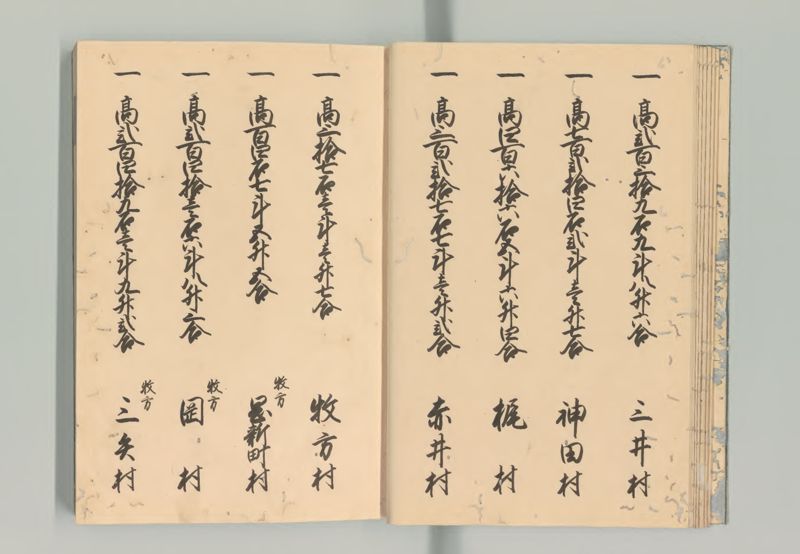 一 高弐百三拾九石九斗八升六合 三井村
一 高七百弐拾四石弐斗壱升七合 神田村
一 高四百六拾六石五斗六升四合 梶村
一 高三百弐拾七石七斗壱升弐合 赤井村
一 高三拾七石壱斗壱升七合 牧方村
一 高百四石七斗五升五合 牧方 新町村
一 高弐百四拾壱石六斗八升三合 牧方 岡村
一 高弐百四拾九石壱斗九升弐合 牧方 三矢村